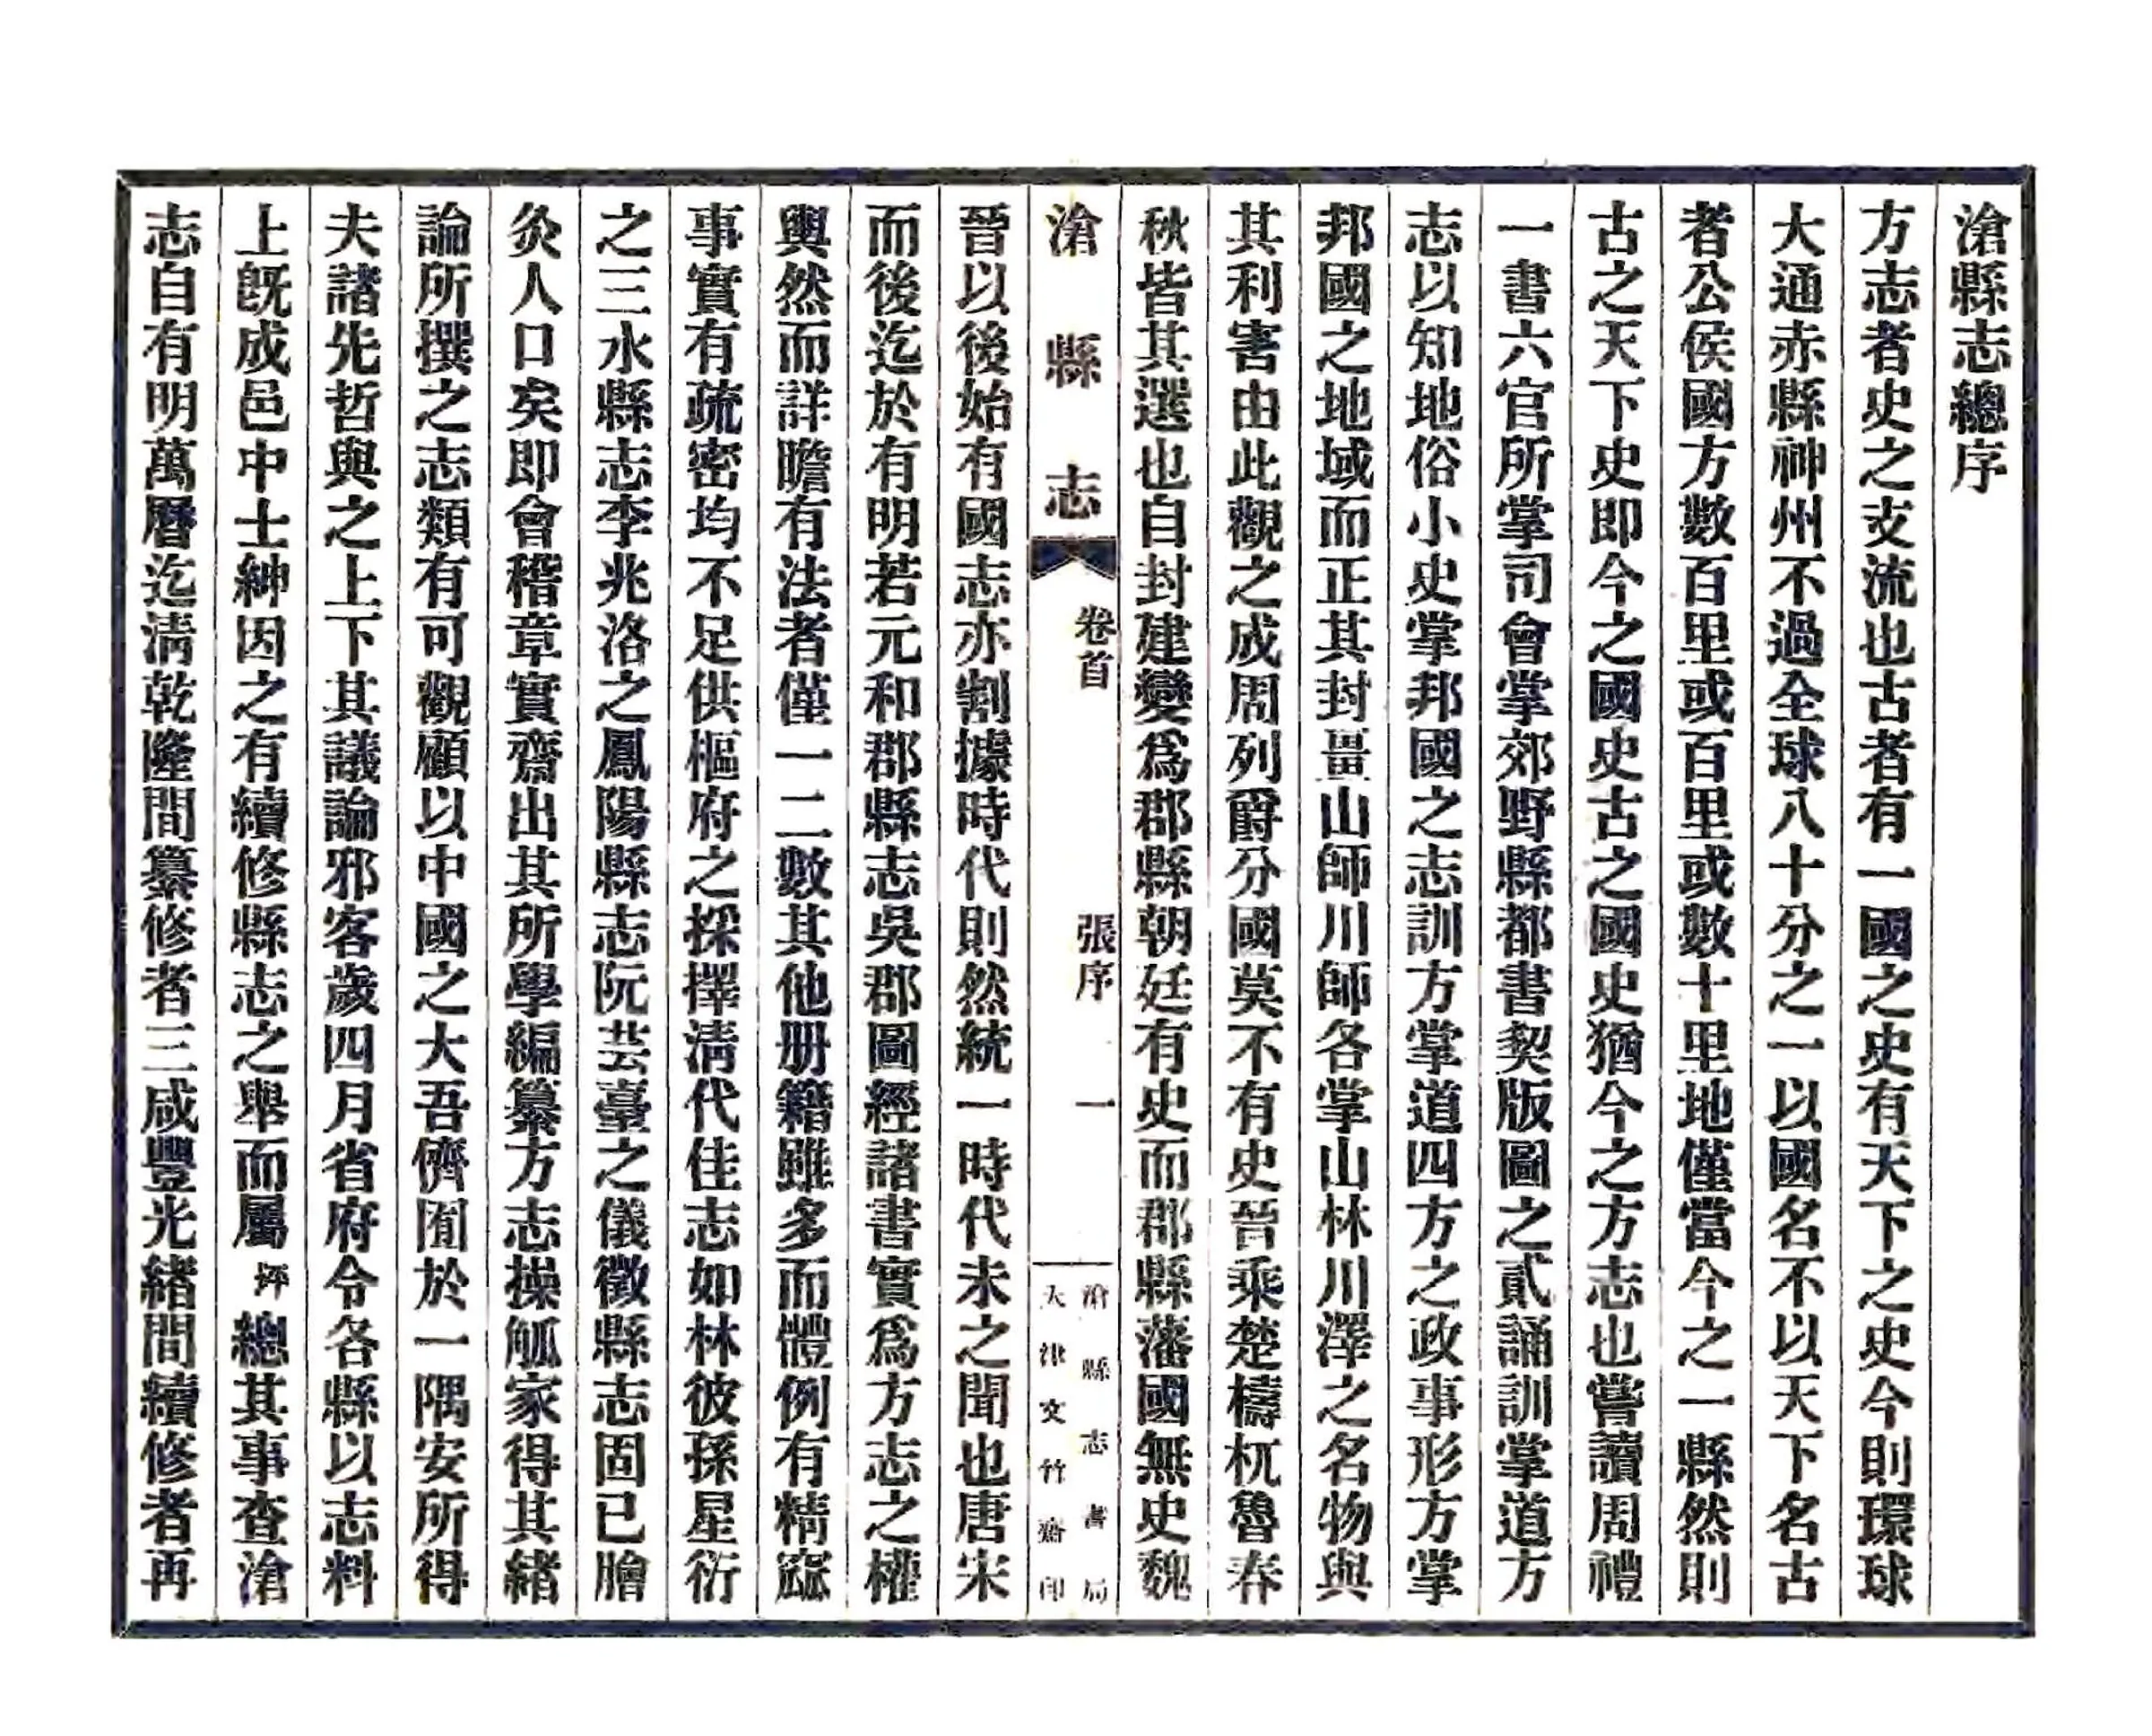 滄縣志總序
方志者史之支流也古者有一國之史有天下之史今則環球
大通赤縣神州不過全球八十分之一以國名不以天下名古
者公侯國方數百里或百里或數十里地僅當今之一縣然則
古之天下史即今之國史古之國史猶今之方志也嘗讀周禮
一書六官所掌司會掌郊野縣都書契版圖之貳誦訓掌道方
志以知地俗小史掌邦國之志訓方掌道四方之政事形方掌
邦國之地域而正其封畺山師川師各掌山林川澤之名物與
其利害由此觀之成周列爵分國莫不有史晉乘楚檮杌魯春
秋皆其選也自封建變爲郡縣朝廷有史而郡縣藩國無史魏
滄縣志
卷首
張序
一
滄縣志書局
天津文竹齋印
晉以後始有國志亦割據時代則然統一時代未之聞也唐宋
而後迄於有明若元和郡縣志吳郡圖經諸書實爲方志之權
輿然而詳瞻有法者僅一二數其他册籍雖多而體例有精窳
事實有疏密均不足供樞府之採擇淸代佳志如林彼孫星衍
之三水縣志李兆洛之鳳陽縣志阮芸臺之儀徵縣志固已膾
灸人口矣即會稽章實齋出其所學編纂方志操觚家得其緒
論所撰之志類有可觀顧以中國之大吾儕囿於一隅安所得
夫諸先哲與之上下其議論邪客歲四月省府令各縣以志料
上旣成邑中士紳因之有續修縣志之舉而屬坪總其事查滄
志自有明萬曆迄淸乾隆間纂修者三咸豐光緒間續修者再